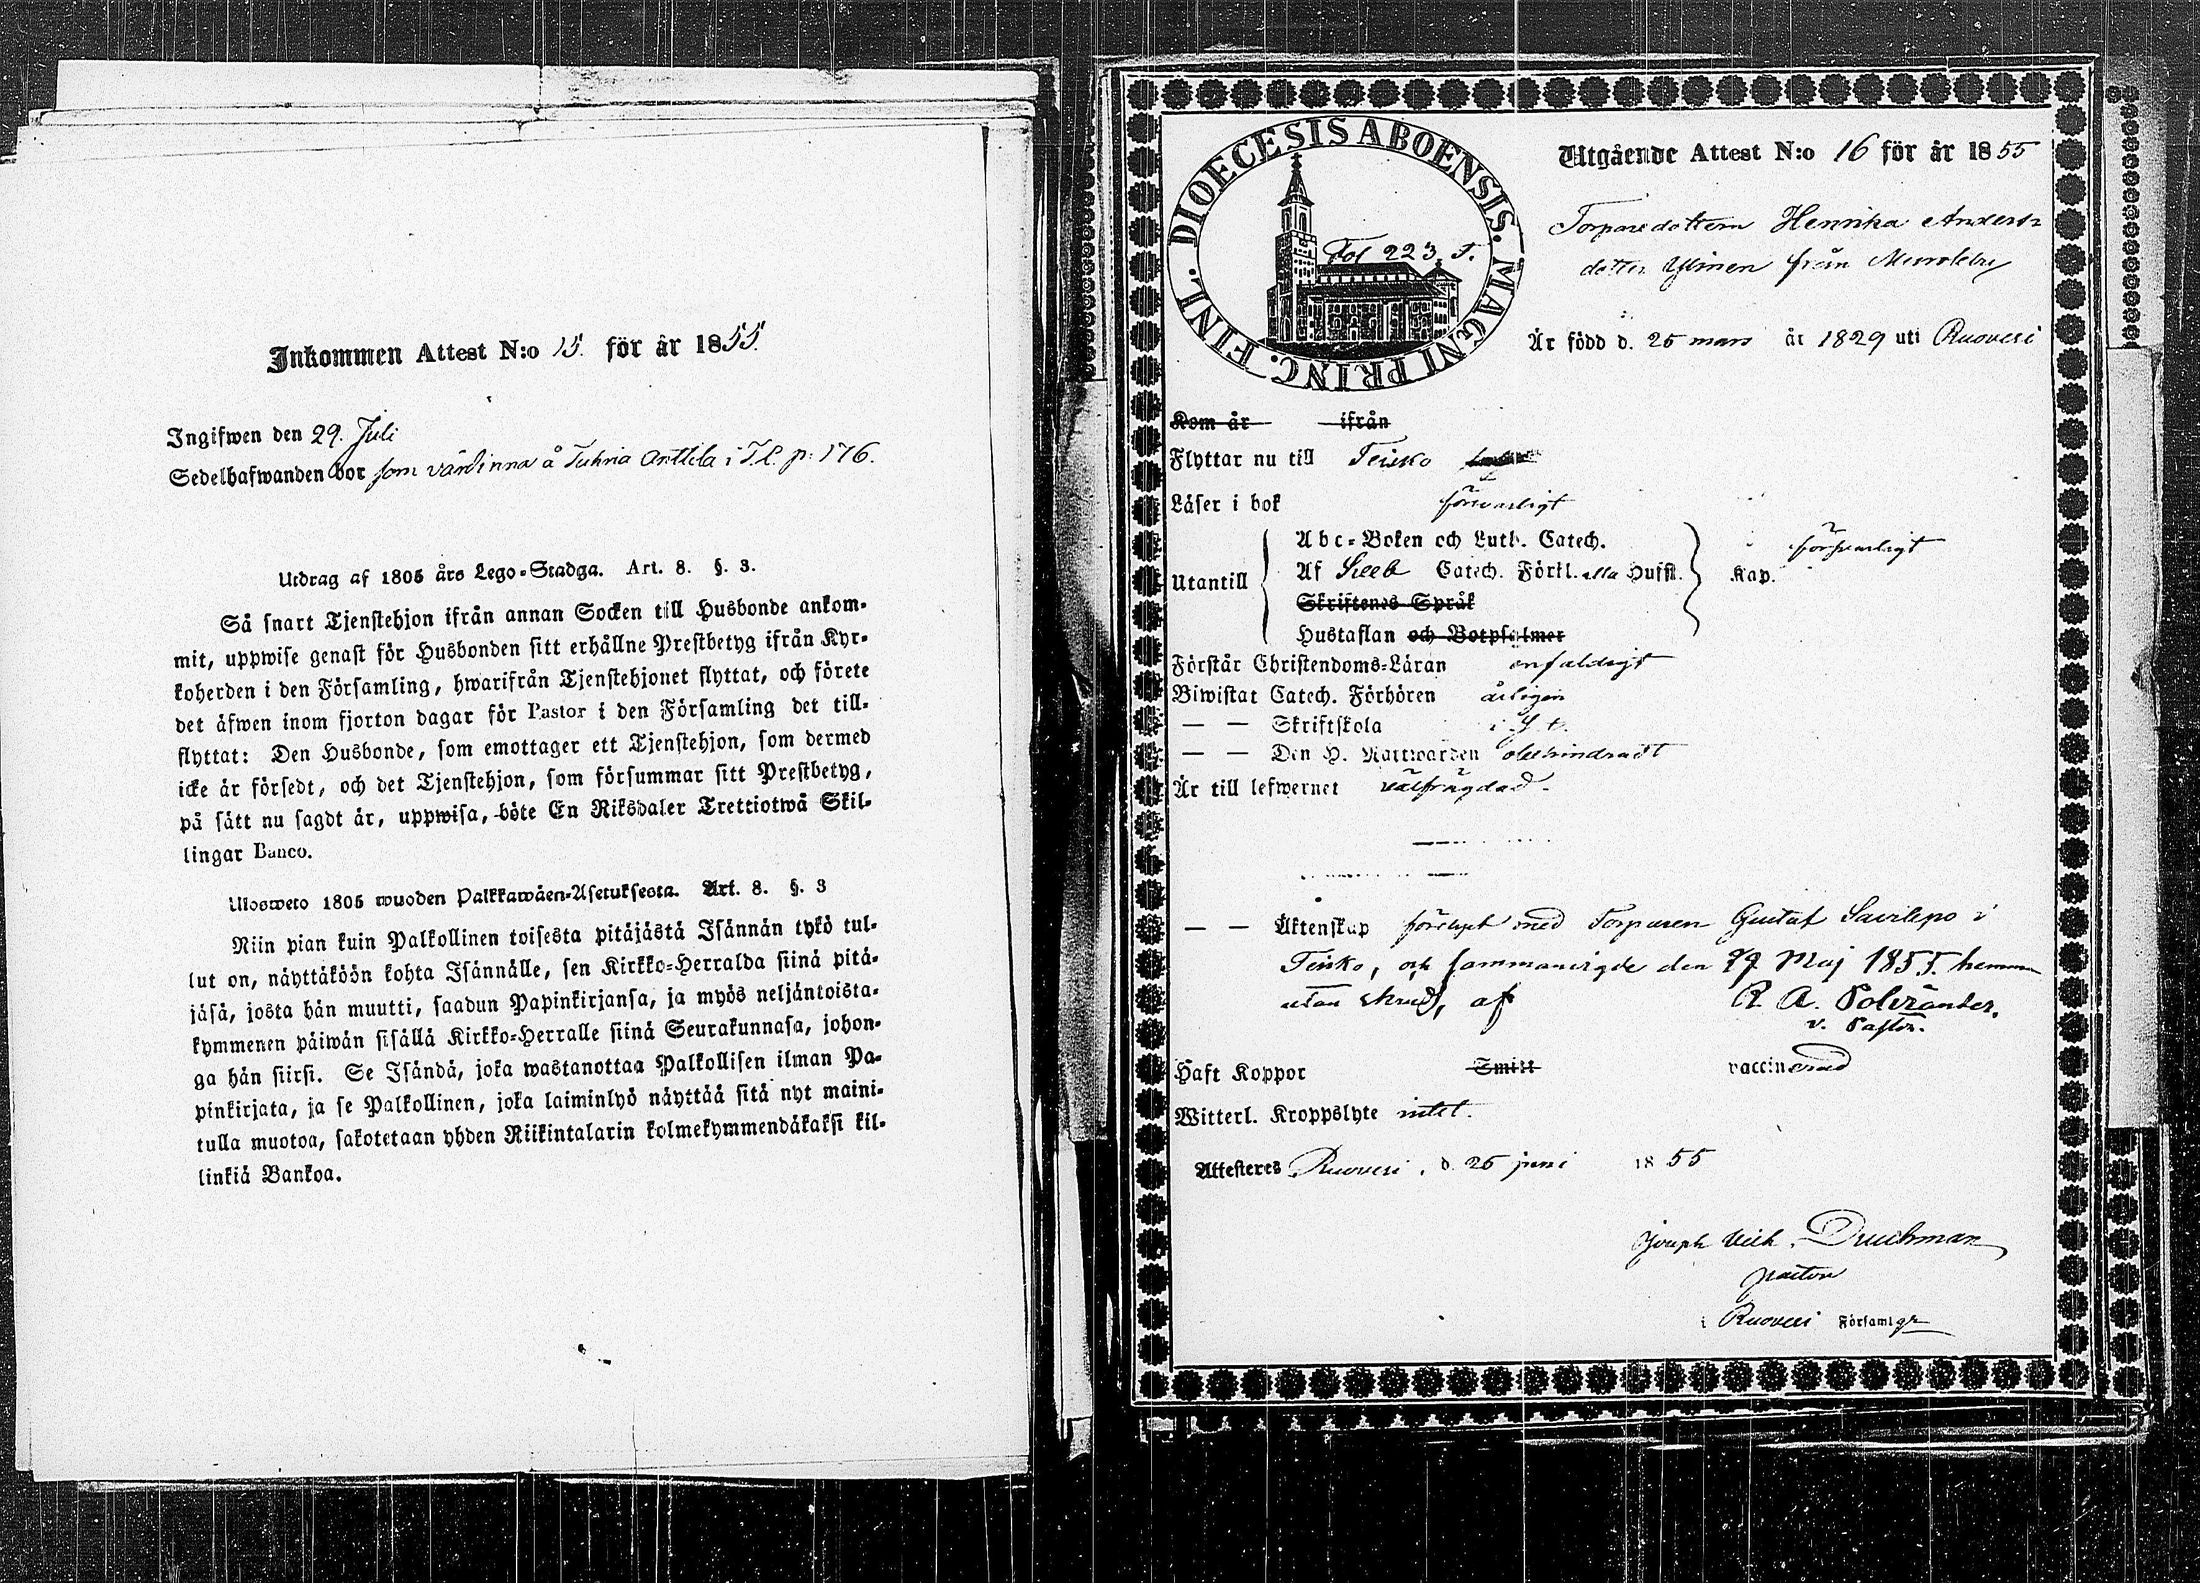 Inkommen Attest N:o 15. för år 1855.
Ingifwen den 29. Juli
Sedelhafwanden bor som värdinna å Tuhria Anttila i T.L. p. 176.
Utdrag af 1805 års Lego-Stadga. Art. 8. §. 3.
Så snart Tjenstehjon ifrån annan Socken till Husbonde ankom-
mit, uppwise genast för Husbonden sitt erhållne Prestbetyg ifrån Kyr-
koherden i den Församling, hwarifrån Tjenstehjonet flyttat, och förete
det äfwen inom fjorton dagar för Pastor i den Församling det till-
flyttat: Den Husbonde, som emottager ett Tjenstehjon, som dermed
icke är försedt, och det Tjenstehjon, som försummar sitt Prestbetyg,
på sätt nu sagdt är, uppwisa, böte En Riksdaler Trettiotwå Skil-
lingar Banco.
Ulosweto 1805 wuoden Palkkawäen-Asetuksesta. Art. 8. §. 3
Niin pian kuin Palkollinen toisesta pitäjästä Isännän tykö tul-
lut on, näyttäköön kohta Isännälle, sen Kirkko-Herralda siinä pitä-
jäsä, josta hän muutti, saadun Papinkirjansa, ja myös neljäntoista-
kymmenen päiwän sisällä Kirkko-Herralle siinä Seurakunnasa, johon-
ga hän siirsi. Se Isändä, joka wastanottaa Palkollisen ilman Pa-
pinkirjata, ja se Palkollinen, joka laiminlyö näyttää sitä nyt maini-
tulla muotoa, sakotetaan yhden Riikintalarin kolmekymmendäkaksi kil-
linkiä Bankoa.
DIOECESIS ABOENSIS. MAGNI PRINC. FINL.
Fol 223 T.
Utgående Attest N:o 16 för år 1855
Torparedottern Henrika Anders
dotter Ylinen från Muroleby
Är född d. 25 mars år 1829 uti Ruovesi
Kom år ifrån
Flyttar nu till Teisko
Läser i bok försvarligt
Abc-Boken och Luth. Catech. försvarligt
Utantill Af Seeb Catech. Förkl. alla Hufst. Kap.
Skriftenes Språk
Hustaflan och Botpsalmer
Förstår Christendoms-Läran enfaldigt
Biwistat Catech. Förhören årligen
— — Skriftskola
— — Den H. Nattwarden obehindradt
Är till lefwernet välfrägdad.
— — Äktenskap förelyst med Torparen Gustaf Savilepo i
Teisko, och sammanvigde den 27 Maj 1855. hemma
utan skrud, af R. A. Polviander.
v. Pastor.
Haft Koppor Smitt vaccinerad
Witterl. Kroppslyte intet.
Attesteres Ruovesi, d. 25 juni 1855
Joseph Vilh. Druchman
pastor
i Ruovesi Församlgr